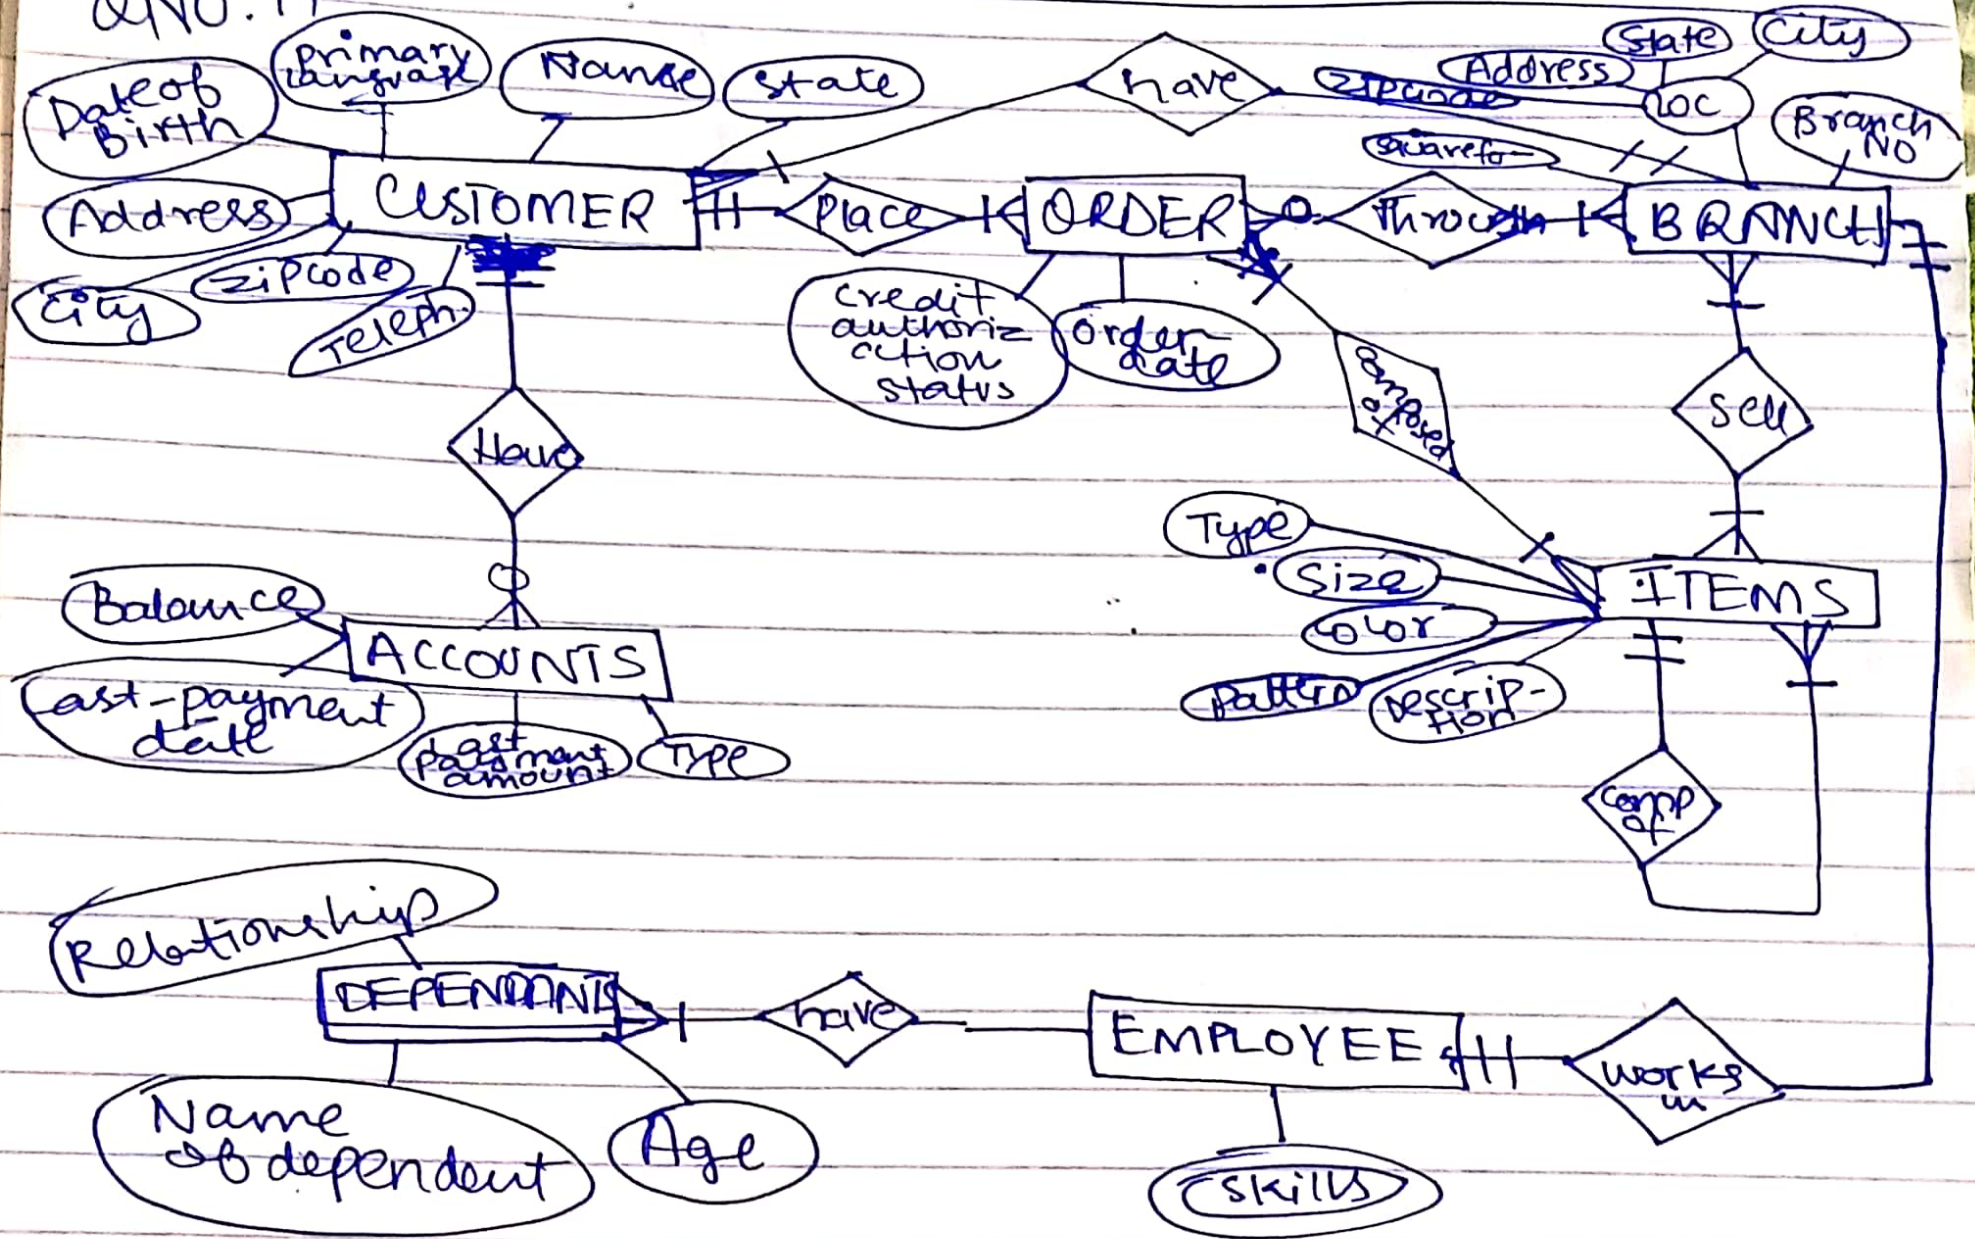 QNO.
Date of
Birth
Primary
Language
Name
State
have
Address
Zipcode
State
City
LOC
Branch
NO
Squarefo
Address
CUSTOMER
Place
ORDER
Through
BRANCH
City
Zipcode
Teleph.
Credit
authoriz
ation
status
Order
date
Composed
of
Sell
Have
Type
Size
Color
Pattern
Descrip-
tion
ITEMS
Balance
ACCOUNTS
Last-payment
date
Last
payment
amount
Type
comp
of
Relationship
DEPENDANTS
have
EMPLOYEE
works
in
Name
of dependent
Age
Skills